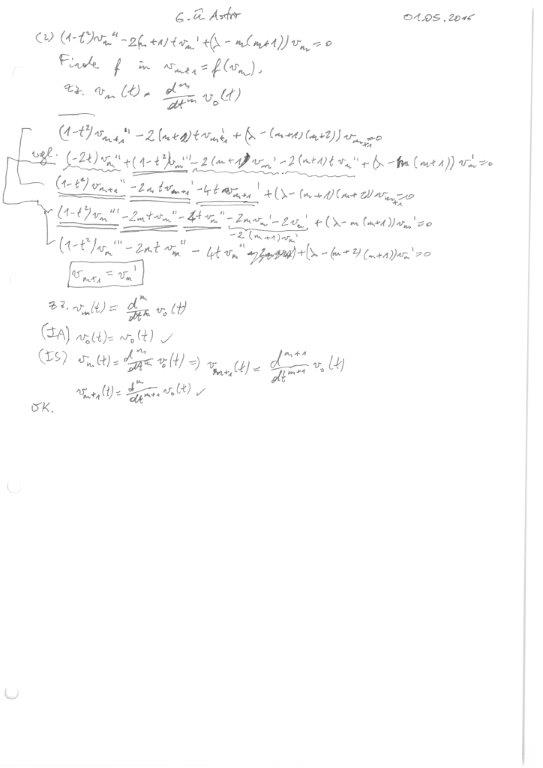 6. Ü Astro 01.05.2016
(2) (1-t²)v_m'' - 2(m+1)t v_m' + (λ - m(m+1)) v_m = 0
Finde f in v_{m+1} = f(v_m),
zz. v_m(t) = d^m/dt^m v_0(t)
(1-t²)v_{m+1}'' - 2(m+2)t v_{m+1}' + (λ - (m+1)(m+2)) v_{m+1} = 0
vgl. (-2t)v_m'' + (1-t²)v_m''' - 2(m+1) v_m' - 2(m+1)t v_m'' + (λ - m(m+1)) v_m' = 0
(1-t²)v_{m+1}'' - 2mt v_{m+1}' - 4t v_{m+1}' + (λ - (m+1)(m+2)) v_{m+1} = 0
(1-t²)v_m''' - 2mt v_m'' - 4t v_m'' - 2m v_m' - 2v_m' + (λ - m(m+1)) v_m' = 0
-2(m+1)v_m'
(1-t²)v_m''' - 2mt v_m'' - 4t v_m'' + (λ - (m+2)(m+1)) v_m' = 0
v_{m+1} = v_m'
zz. v_m(t) = d^m/dt^m v_0(t)
(IA) v_0(t) = v_0(t) ✓
(IS) v_m(t) = d^m/dt^m v_0(t) ⇒ v_{m+1}(t) = d^{m+1}/dt^{m+1} v_0(t)
v_{m+1}(t) = d^m/dt^{m+1} v_0(t) ✓
OK.